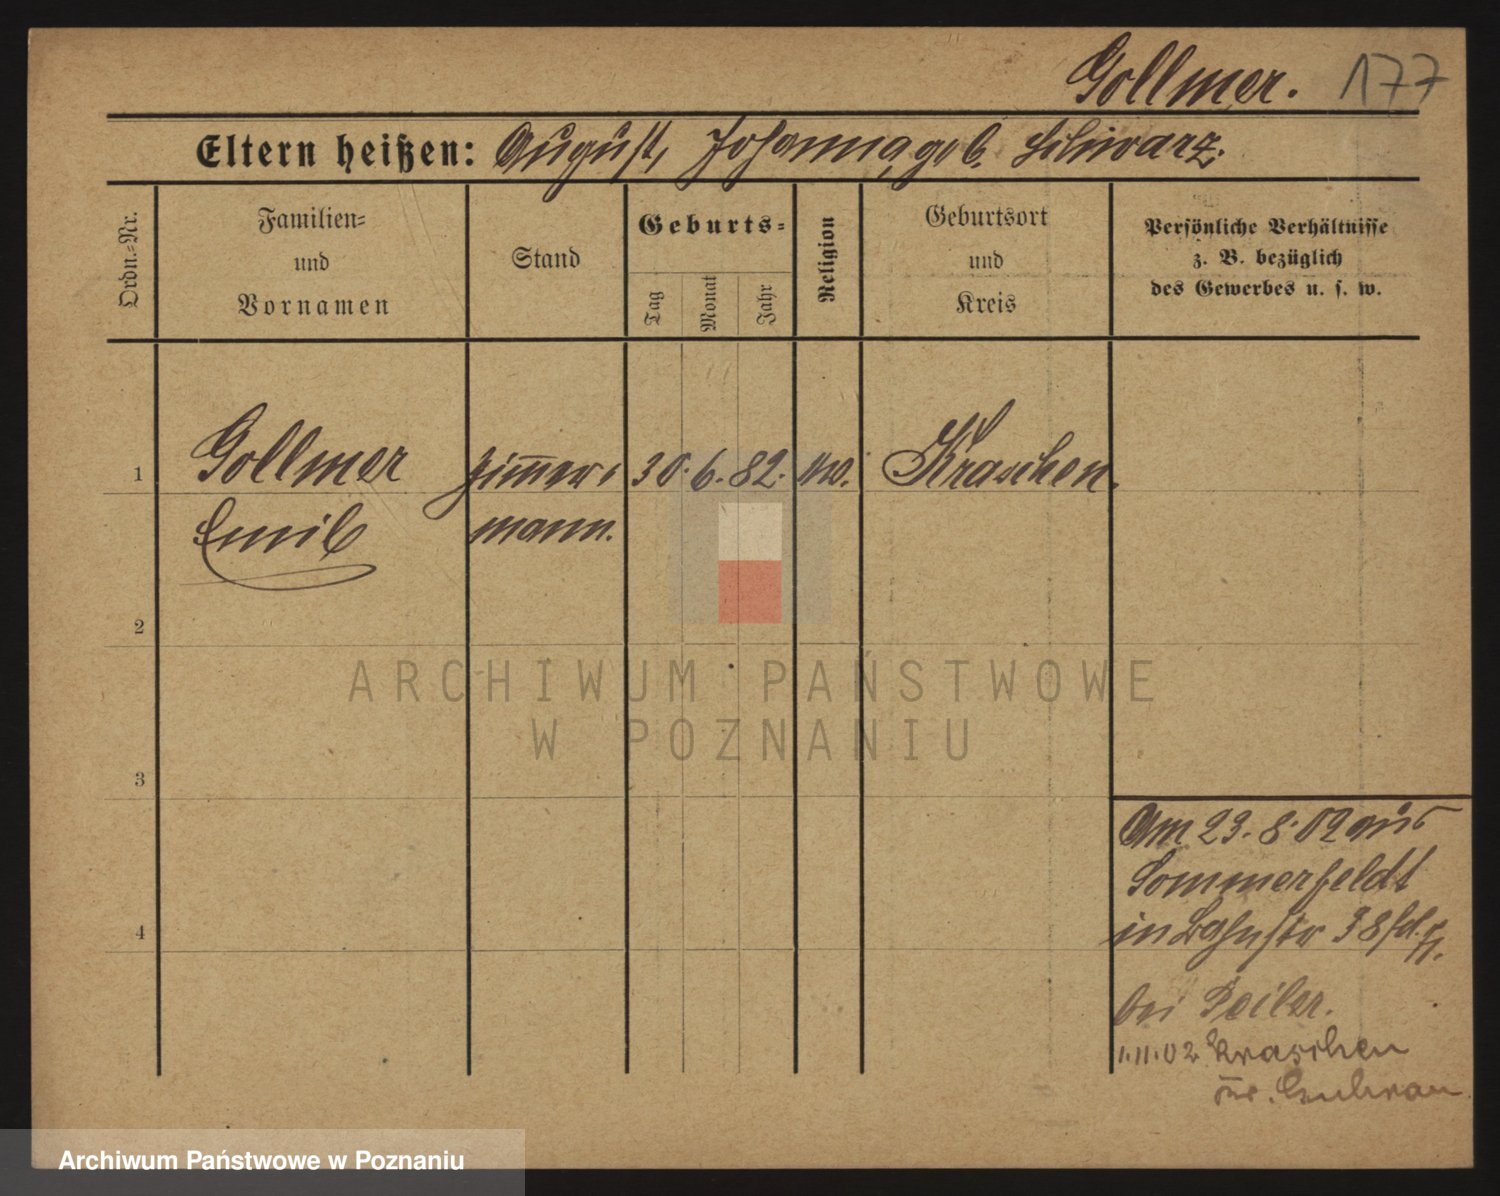 Gollmer. 177
Eltern heißen: August, Johanna, geb. Schwarz.
Ordn.=Nr.
Familien=
und
Vornamen
Stand
Geburts=
Tag
Monat
Jahr
Religion
Geburtsort
und
Kreis
Persönliche Verhältnisse
z. B. bezüglich
des Gewerbes u. s. w.
1 Gollmer Zimmer= 30. 6. 82. Kraschen.
Emil mann.
2
3
4
Am 23. 8. 02 aus
Sommerfeldt
in Bahnstr 38
bei
1.11.02 Kraschen
Kr. Guhrau
ARCHIWUM PAŃSTWOWE
W POZNANIU
Archiwum Państwowe w Poznaniu